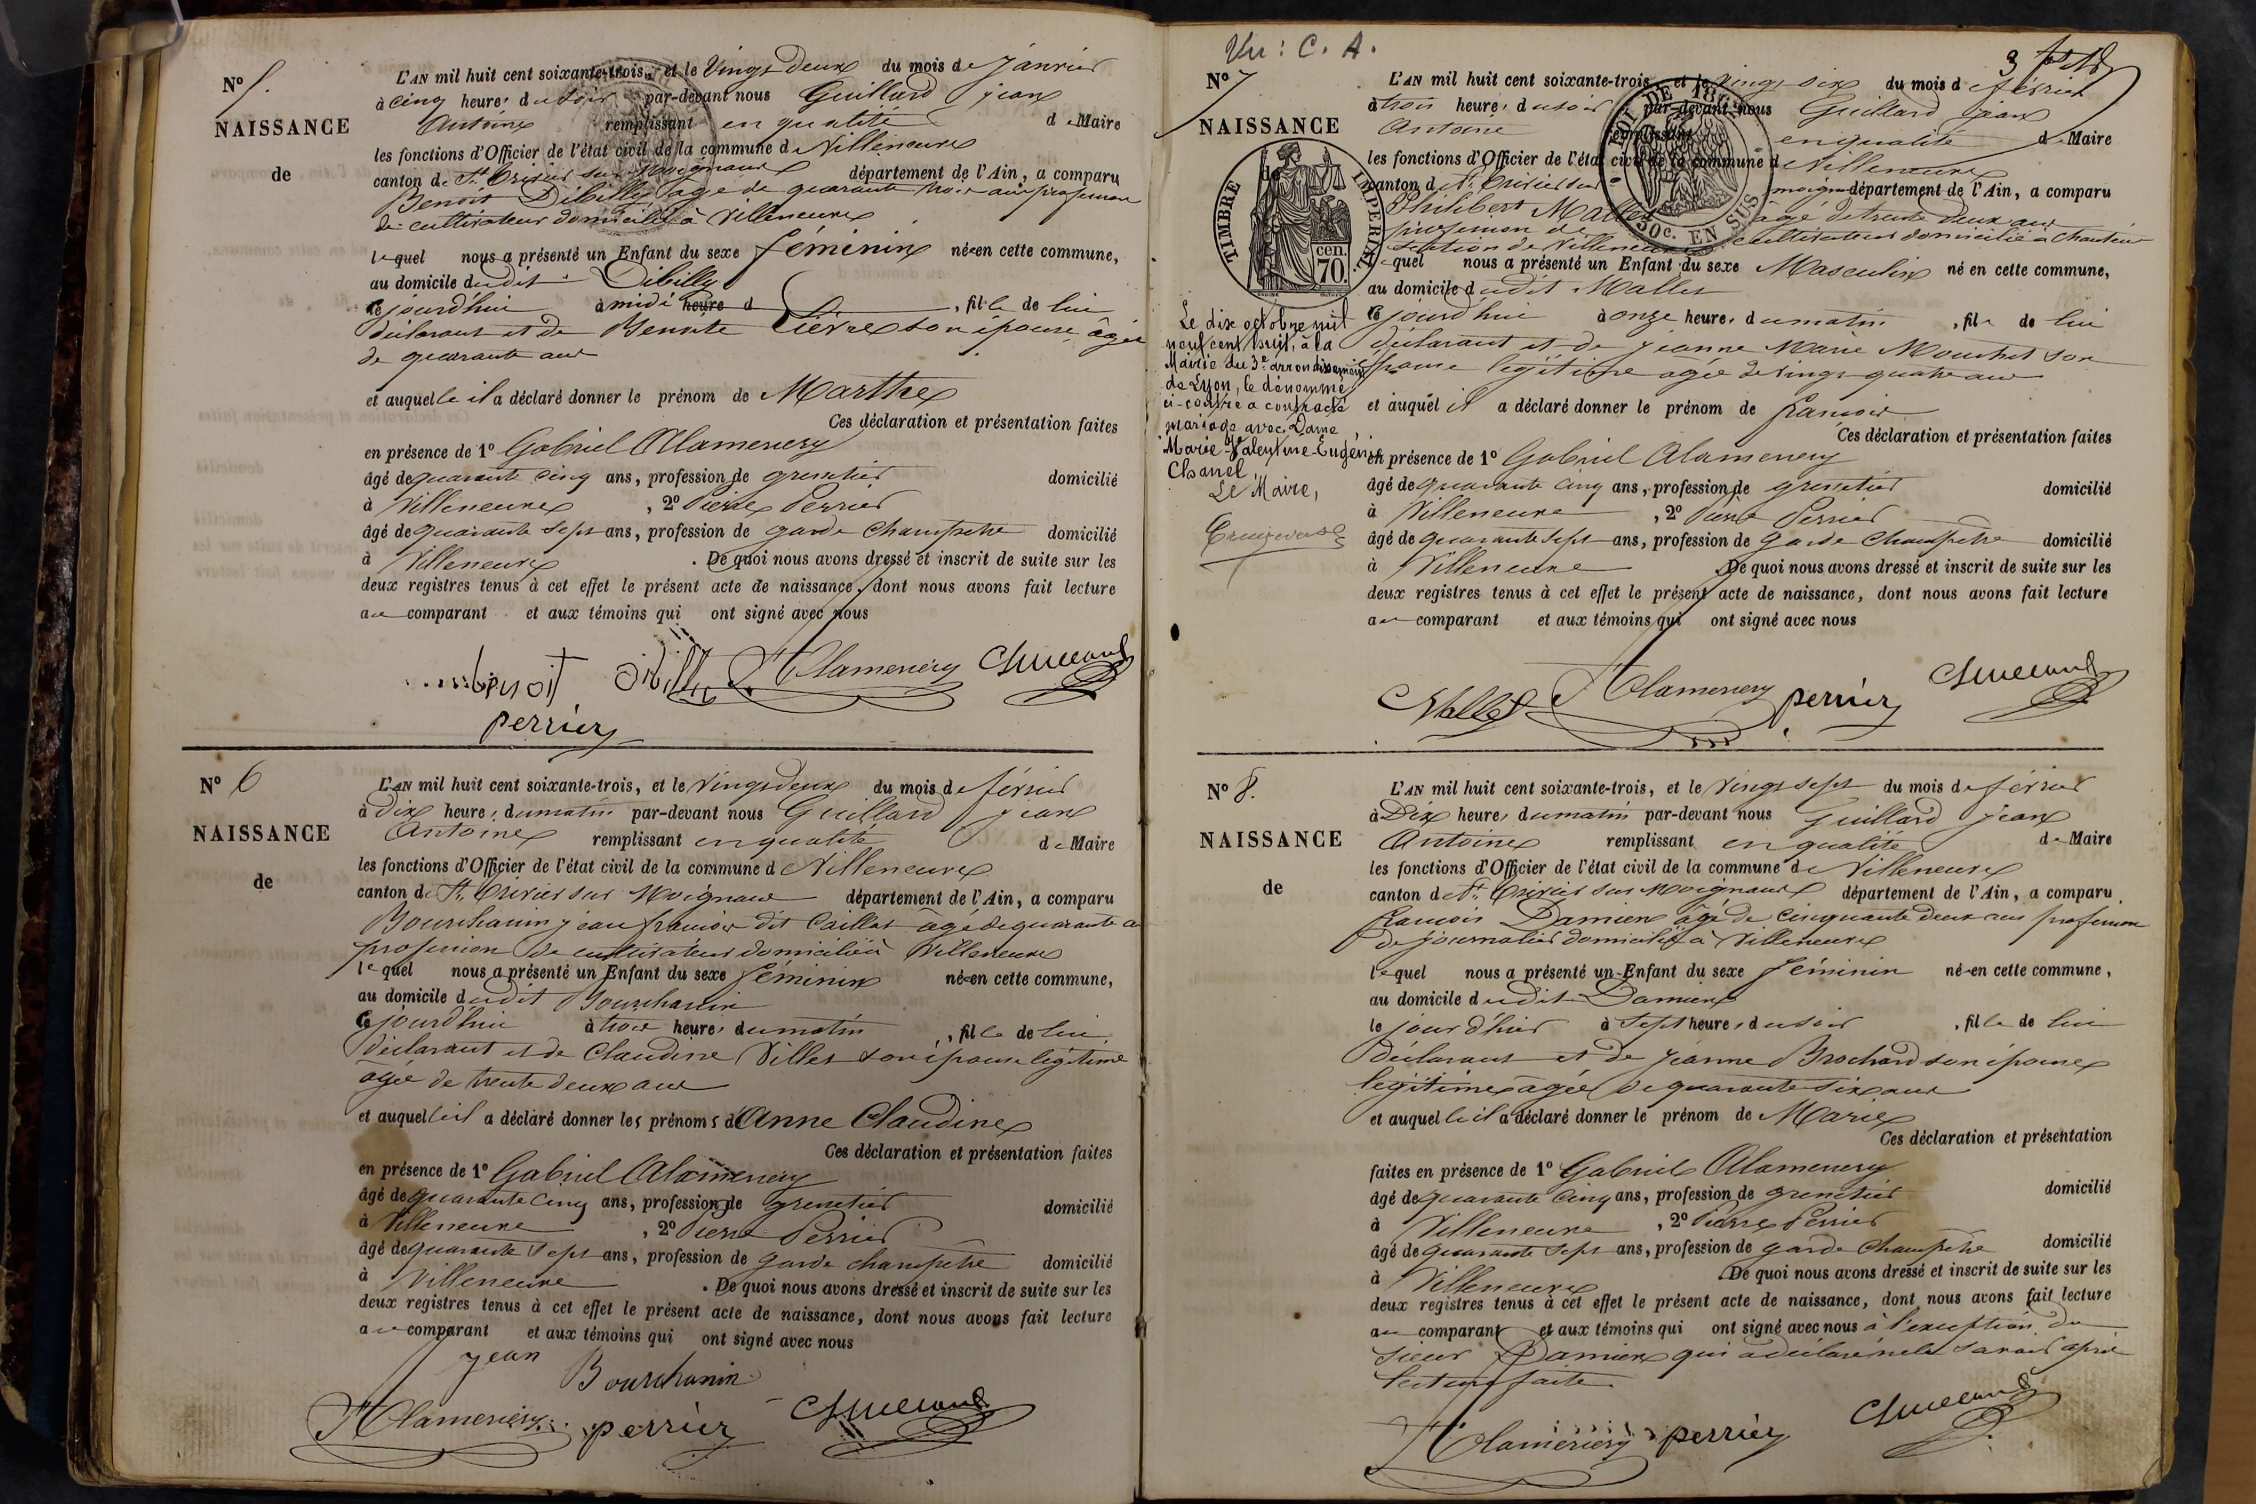 N° 5.
NAISSANCE
de
L'AN mil huit cent soixante-trois, et le Vingt deux du mois de janvier
à cinq heures du soir par-devant nous Guillard jean
Antoine remplissant en qualité de Maire
les fonctions d'Officier de l'état civil de la commune de Villeneuve
canton de St. Trivier sur Moignans département de l'Ain, a comparu
Benoit Dibilly âgé de quarante trois ans profession
de cultivateur domicilié à Villeneuve
lequel nous a présenté un Enfant du sexe féminin née en cette commune,
au domicile dudit Dibilly
ce jourd'hui à midi heure d , fille de lui
déclarant et de Benoite Lièvre son épouse âgée
de quarante ans
et auquelle il a déclaré donner le prénom de Marthe
Ces déclaration et présentation faites
en présence de 1° Gabriel Alamenery
âgé de quarante cinq ans, profession de grenetier domicilié
à Villeneuve, 2° Pierre Perrier
âgé de quarante sept ans, profession de garde champetre domicilié
à Villeneuve . De quoi nous avons dressé et inscrit de suite sur les
deux registres tenus à cet effet le présent acte de naissance, dont nous avons fait lecture
au comparant et aux témoins qui ont signé avec nous
benoit Dibilly Alamenery
perrier
N° 6
NAISSANCE
de
L'AN mil huit cent soixante-trois, et le Vingt deux du mois de février
à Dix heures du matin par-devant nous Guillard jean
Antoine remplissant en qualité de Maire
les fonctions d'Officier de l'état civil de la commune de Villeneuve
canton de St. Trivier sur Moignans département de l'Ain, a comparu
Bourchanin jean françois dit Caillat âgé de quarante
profession de cultivateur domicilié à Villeneuve
lequel nous a présenté un Enfant du sexe féminin née en cette commune,
au domicile dudit Bourchanin
ce jourd'hui à trois heures du matin , fille de lui
déclarant et de Claudine Villes son épouse légitime
agée de trente deux ans
et auquelle il a déclaré donner les prénoms d'Anne Claudine
Ces déclaration et présentation faites
en présence de 1° Gabriel Alamenery
âgé de quarante cinq ans, profession de grenetier domicilié
à Villeneuve, 2° Pierre Perrier
âgé de quarante sept ans, profession de garde champêtre domicilié
à Villeneuve . De quoi nous avons dressé et inscrit de suite sur les
deux registres tenus à cet effet le présent acte de naissance, dont nous avons fait lecture
au comparant et aux témoins qui ont signé avec nous
jean Bourchanin
Alamenery perrier
Vu : C. A.
3
N° 7
NAISSANCE
de
TIMBRE IMPERIAL
cen. 70.
LOI DE 18
50c. EN SUS
L'AN mil huit cent soixante-trois, et le Vingt six du mois de février
à trois heures du soir par-devant nous Guillard jean
Antoine remplissant en qualité de Maire
les fonctions d'Officier de l'état civil de la commune de Villeneuve
canton de St. Trivier sur moignans département de l'Ain, a comparu
Philibert Mallet âgé de trente deux ans
profession de cultivateur domicilié à Chanteins
section de Villeneuve
lequel nous a présenté un Enfant du sexe Masculin né en cette commune,
au domicile dudit Mallet
ce jourd'hui à onze heures du matin , fils de lui
déclarant et de jeanne Marie Mouchet son
épouse légitime agée de vingt quatre ans
et auquel il a déclaré donner le prénom de françois
Ces déclaration et présentation faites
en présence de 1° Gabriel Alamenery
âgé de quarante cinq ans, profession de grenetier domicilié
à Villeneuve, 2° Pierre Perrier
âgé de quarante sept ans, profession de garde champêtre domicilié
à Villeneuve . De quoi nous avons dressé et inscrit de suite sur les
deux registres tenus à cet effet le présent acte de naissance, dont nous avons fait lecture
au comparant et aux témoins qui ont signé avec nous
Mallet Alamenery perrier
Le dix octobre mil
neuf cent huit, à la
Mairie du 3e arrondissement
de Lyon, le dénommé
ci-contre a contracté
mariage avec Dame
Marie-Valentine-Eugénie
Chanel
Le Maire,
N° 8.
NAISSANCE
de
L'AN mil huit cent soixante-trois, et le Vingt sept du mois de février
à Dix heures du matin par-devant nous Guillard jean
Antoine remplissant en qualité de Maire
les fonctions d'Officier de l'état civil de la commune de Villeneuve
canton de St. Trivier sur Moignans département de l'Ain, a comparu
françois Damien âgé de cinquante deux ans profession
de journalier domicilié à Villeneuve
lequel nous a présenté un Enfant du sexe féminin née en cette commune,
au domicile dudit Damien
le jour d'hier à Sept heures du soir , fille de lui
déclarant et de jeanne Brochard son épouse
légitime âgée de quarante six ans
et auquelle il a déclaré donner le prénom de Marie
Ces déclaration et présentation
faites en présence de 1° Gabriel Alamenery
âgé de quarante cinq ans, profession de grenetier domicilié
à Villeneuve, 2° Pierre Perrier
âgé de quarante sept ans, profession de garde champêtre domicilié
à Villeneuve . De quoi nous avons dressé et inscrit de suite sur les
deux registres tenus à cet effet le présent acte de naissance, dont nous avons fait lecture
au comparant et aux témoins qui ont signé avec nous à l'exception du
sieur Damien qui a déclaré ne le savoir après
lecture faite
Alamenery perrier